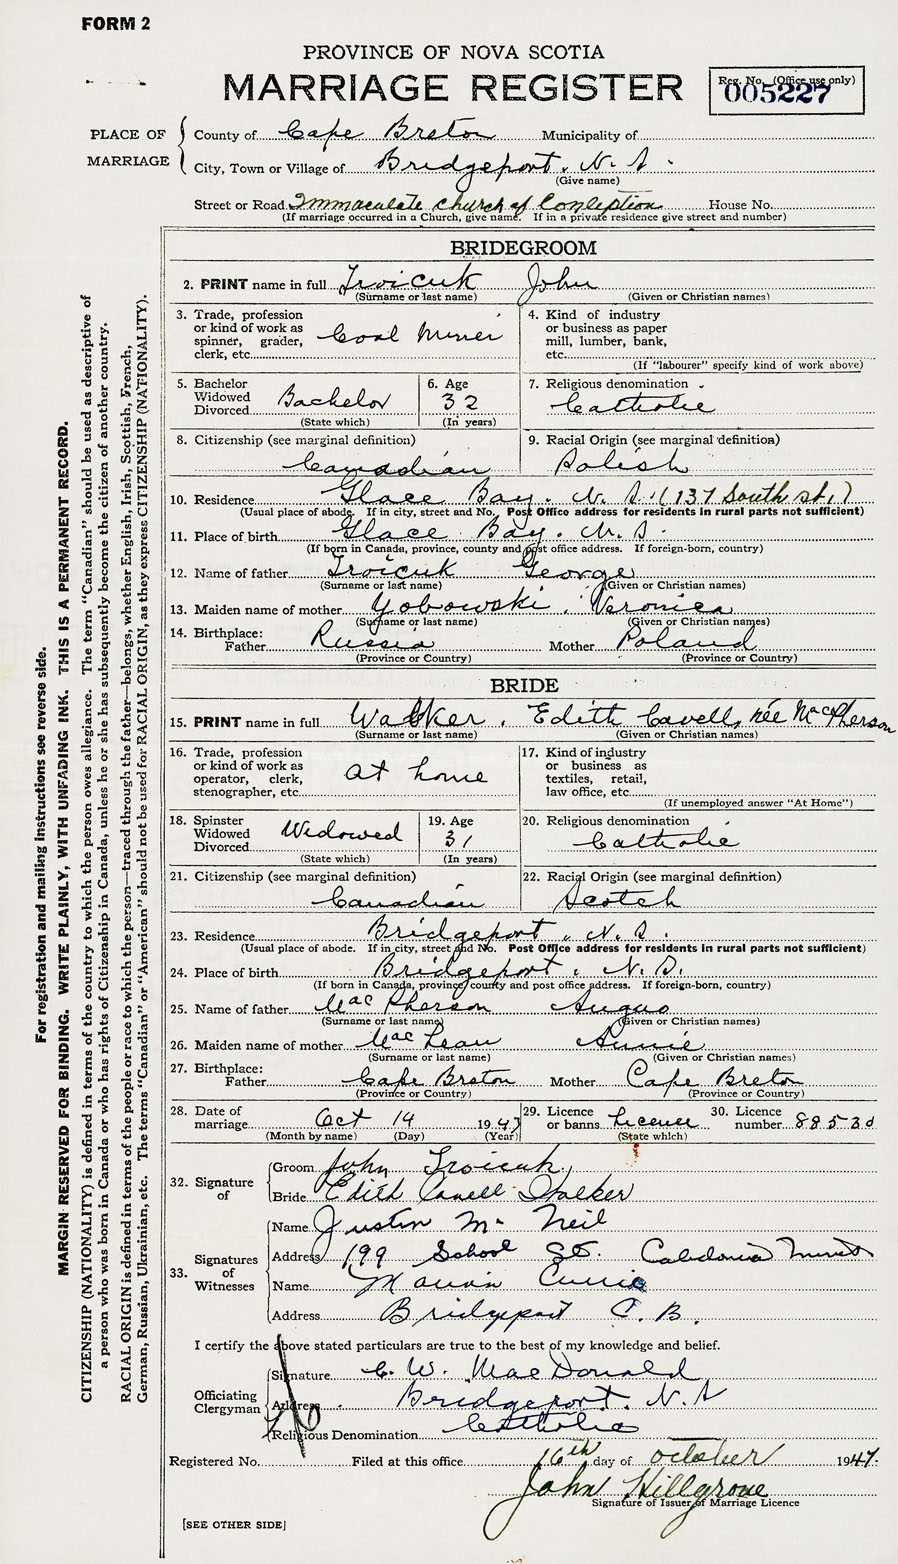 FORM 2
PROVINCE OF NOVA SCOTIA
MARRIAGE REGISTER
Reg. No. (Office use only)
005227
PLACE OF MARRIAGE
County of Cape Breton Municipality of
City, Town or Village of Bridgeport. N. S.
(Give name)
Street or Road Immaculate church of Conception House No.
(If marriage occurred in a Church, give name. If in a private residence give street and number)
BRIDEGROOM
2. PRINT name in full Troicuk John
(Surname or last name) (Given or Christian names)
3. Trade, profession or kind of work as spinner, grader, clerk, etc. Coal Miner
4. Kind of industry or business as paper mill, lumber, bank, etc.
(If "labourer" specify kind of work above)
5. Bachelor Widowed Divorced Bachelor
(State which)
6. Age 32
(In years)
7. Religious denomination
Catholic
8. Citizenship (see marginal definition)
Canadian
9. Racial Origin (see marginal definition)
Polish
10. Residence Glace Bay. N. S. (137 South st.)
(Usual place of abode. If in city, street and No. Post Office address for residents in rural parts not sufficient)
11. Place of birth Glace Bay. N. S.
(If born in Canada, province, county and post office address. If foreign-born, country)
12. Name of father Troicuk George
(Surname or last name) (Given or Christian names)
13. Maiden name of mother Yobowski. Veronica
(Surname or last name) (Given or Christian names)
14. Birthplace:
Father Russia Mother Poland
(Province or Country) (Province or Country)
BRIDE
15. PRINT name in full Walker. Edith Cavell, née MacPherson
(Surname or last name) (Given or Christian names)
16. Trade, profession or kind of work as operator, clerk, stenographer, etc. at home
17. Kind of industry or business as textiles, retail, law office, etc.
(If unemployed answer "At Home")
18. Spinster Widowed Divorced Widowed
(State which)
19. Age 31
(In years)
20. Religious denomination
Catholic
21. Citizenship (see marginal definition)
Canadian
22. Racial Origin (see marginal definition)
Scotch
23. Residence Bridgeport. N. S.
(Usual place of abode. If in city, street and No. Post Office address for residents in rural parts not sufficient)
24. Place of birth Bridgeport. N. S.
(If born in Canada, province, county and post office address. If foreign-born, country)
25. Name of father MacPherson Angus
(Surname or last name) (Given or Christian names)
26. Maiden name of mother MacLean Annie
(Surname or last name) (Given or Christian names)
27. Birthplace:
Father Cape Breton Mother Cape Breton
(Province or Country) (Province or Country)
28. Date of marriage Oct 14 1947
(Month by name) (Day) (Year)
29. Licence or banns License
(State which)
30. Licence number 88530
32. Signature of
Groom John Troicuk
Bride Edith Cavell Walker
33. Signatures of Witnesses
Name Justin Mc Neil
Address 199 School St. Caledonia Mines
Name Currie
Address Bridgeport C. B.
I certify the above stated particulars are true to the best of my knowledge and belief.
Officiating Clergyman
Signature C. W. MacDonald
Address Bridgeport. N. S
Religious Denomination Catholic
Registered No. Filed at this office 16th day of october 1947.
John Killgrove
Signature of Issuer of Marriage Licence
[SEE OTHER SIDE]
For registration and mailing instructions see reverse side.
MARGIN RESERVED FOR BINDING. WRITE PLAINLY, WITH UNFADING INK. THIS IS A PERMANENT RECORD.
CITIZENSHIP (NATIONALITY) is defined in terms of the country to which the person owes allegiance. The term "Canadian" should be used as descriptive of
a person who was born in Canada or who has rights of Citizenship in Canada, unless he or she has subsequently become the citizen of another country.
RACIAL ORIGIN is defined in terms of the people or race to which the person—traced through the father—belongs, whether English, Irish, Scottish, French,
German, Russian, Ukrainian, etc. The terms "Canadian" or "American" should not be used for RACIAL ORIGIN, as they express CITIZENSHIP (NATIONALITY).